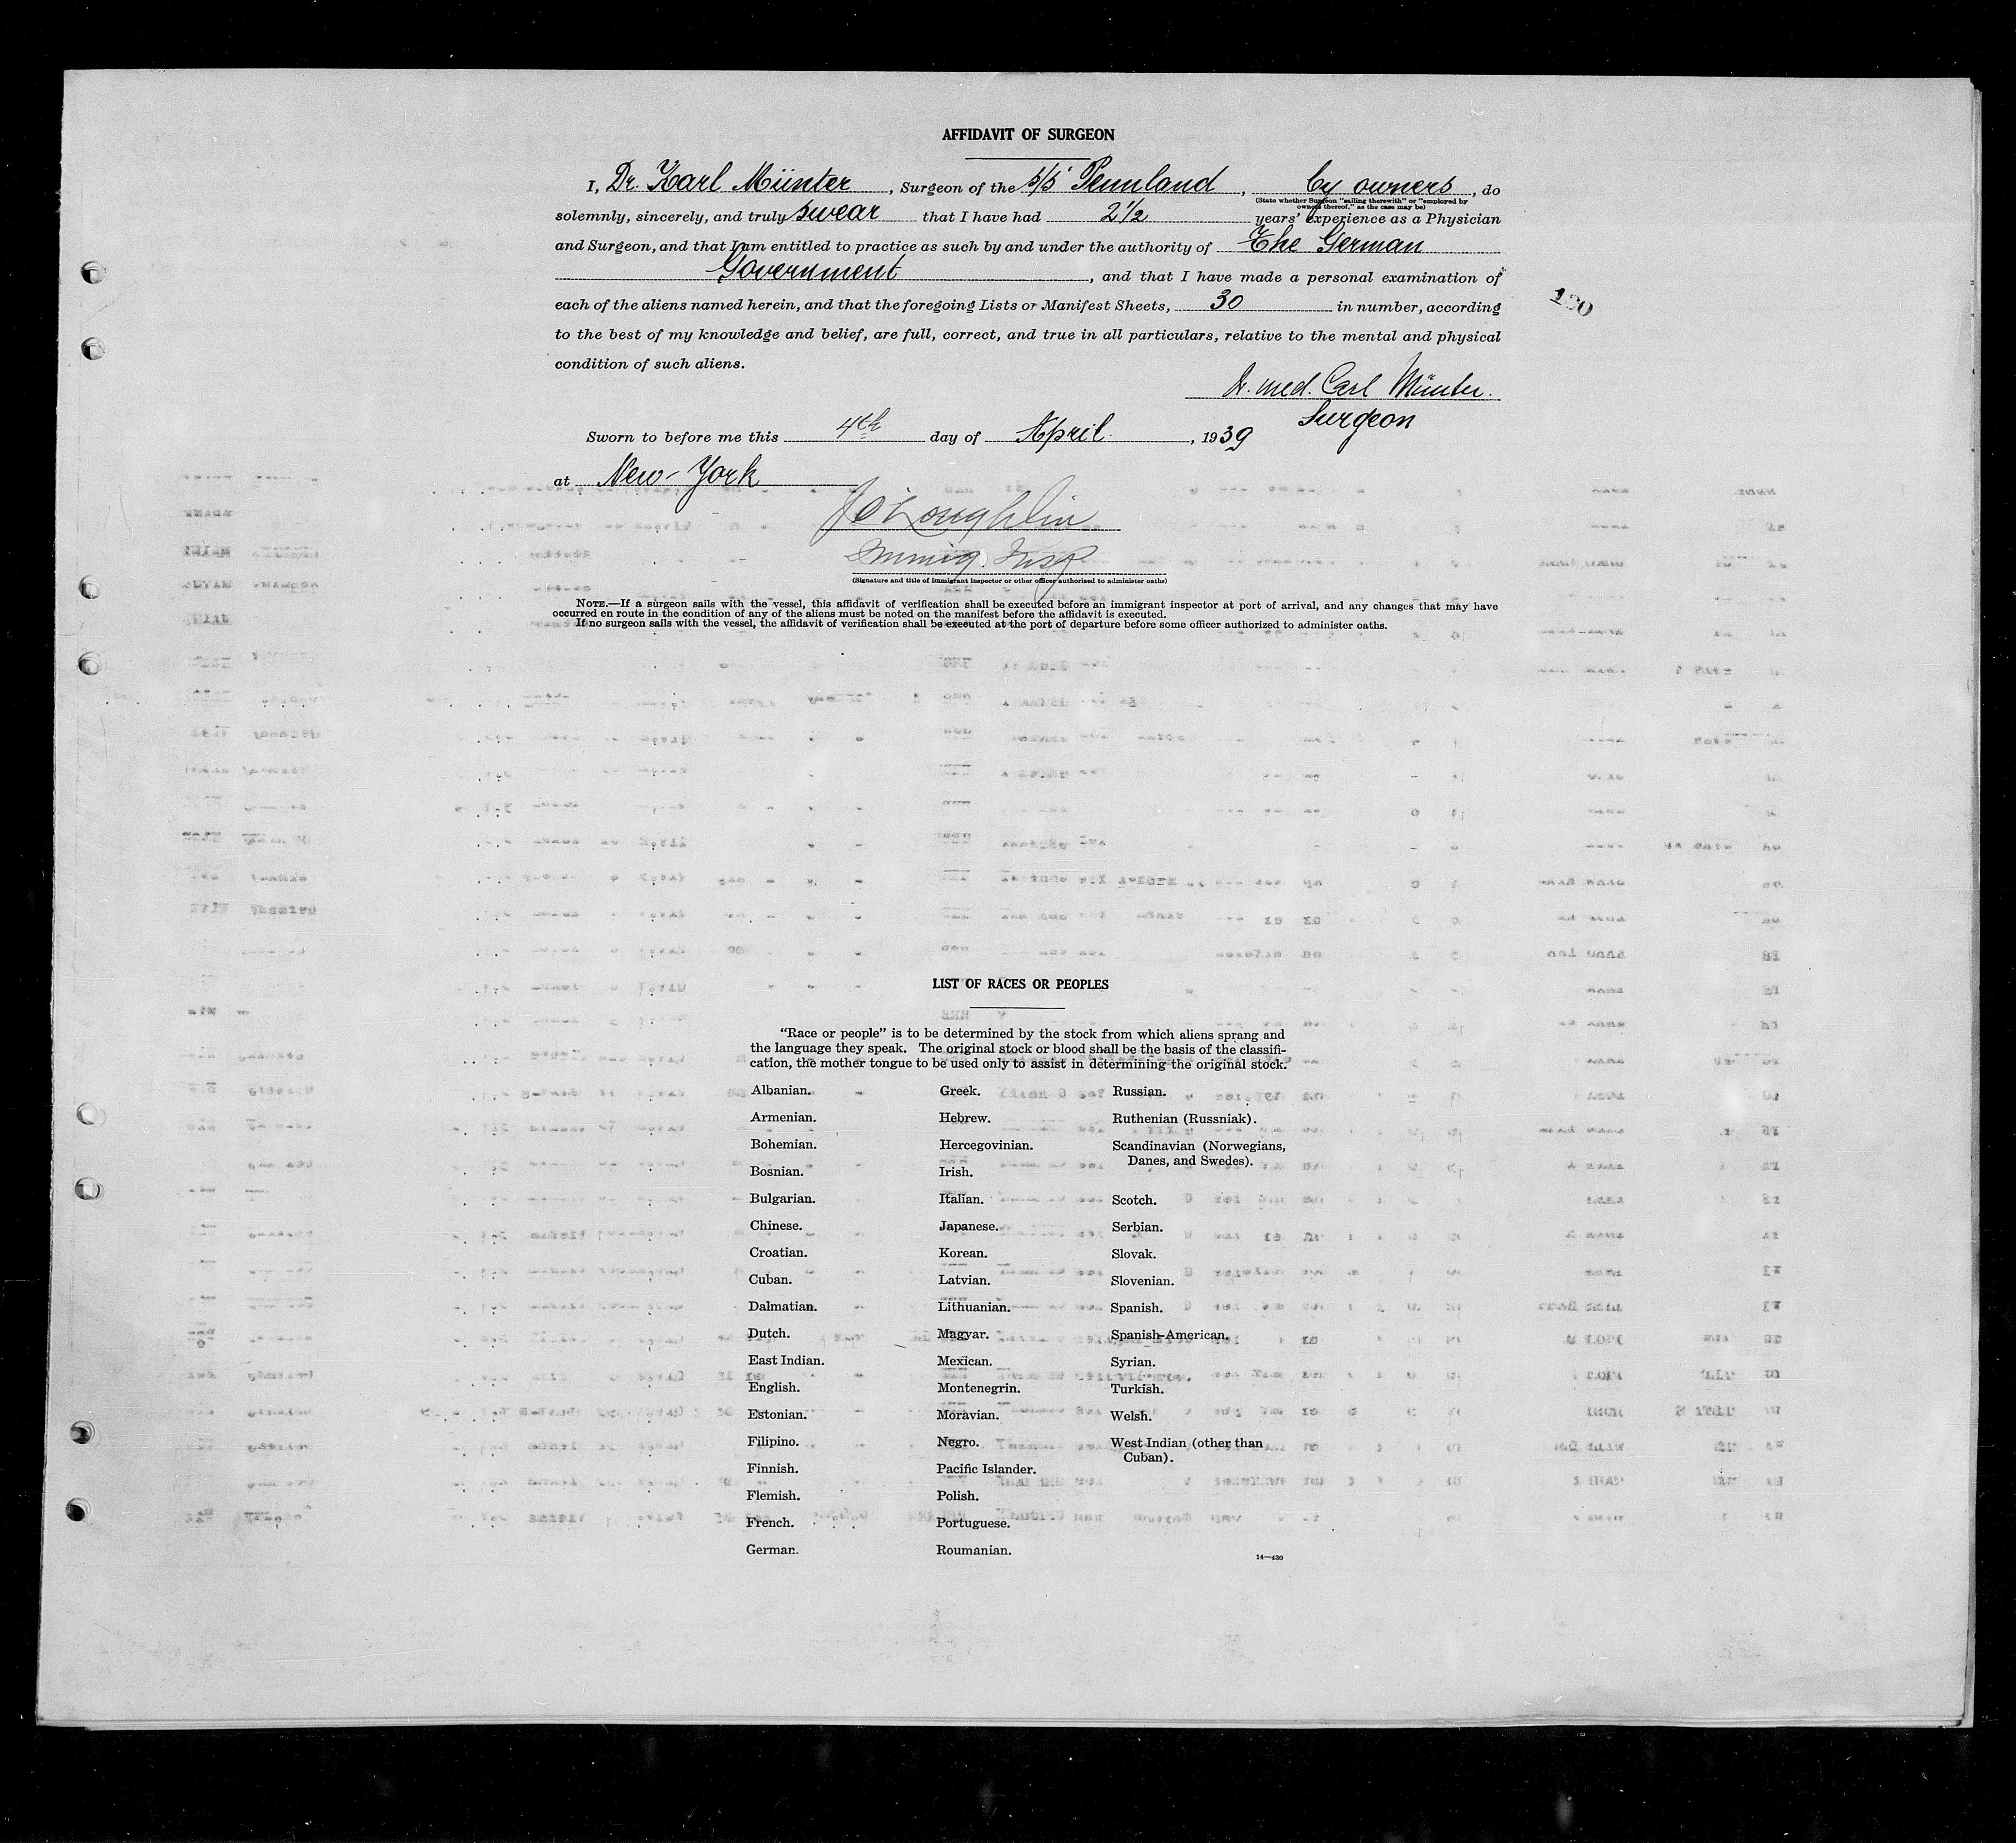 AFFIDAVIT OF SURGEON
I, Dr. Karl Münter, Surgeon of the S/S Pennland, by owners, do
(State whether Surgeon "sailing therewith" or "employed by
owners thereof," as the case may be)
solemnly, sincerely, and truly swear that I have had 2 1/2 years' experience as a Physician
and Surgeon, and that I am entitled to practice as such by and under the authority of The German
Government, and that I have made a personal examination of
each of the aliens named herein, and that the foregoing Lists or Manifest Sheets, 30 in number, according
to the best of my knowledge and belief, are full, correct, and true in all particulars, relative to the mental and physical
condition of such aliens.
Dr. med. Carl Münter.
Surgeon
Sworn to before me this 4th day of April, 1939
at New-York
J O'Loughlin
Immig. Insp
(Signature and title of immigrant inspector or other officer authorized to administer oaths)
NOTE.—If a surgeon sails with the vessel, this affidavit of verification shall be executed before an immigrant inspector at port of arrival, and any changes that may have
occurred en route in the condition of any of the aliens must be noted on the manifest before the affidavit is executed.
If no surgeon sails with the vessel, the affidavit of verification shall be executed at the port of departure before some officer authorized to administer oaths.
LIST OF RACES OR PEOPLES
"Race or people" is to be determined by the stock from which aliens sprang and
the language they speak. The original stock or blood shall be the basis of the classifi-
cation, the mother tongue to be used only to assist in determining the original stock.
Albanian.
Armenian.
Bohemian.
Bosnian.
Bulgarian.
Chinese.
Croatian.
Cuban.
Dalmatian.
Dutch.
East Indian.
English.
Estonian.
Filipino.
Finnish.
Flemish.
French.
German.
Greek.
Hebrew.
Hercegovinian.
Irish.
Italian.
Japanese.
Korean.
Latvian.
Lithuanian.
Magyar.
Mexican.
Montenegrin.
Moravian.
Negro.
Pacific Islander.
Polish.
Portuguese.
Roumanian.
Russian.
Ruthenian (Russniak).
Scandinavian (Norwegians,
Danes, and Swedes).
Scotch.
Serbian.
Slovak.
Slovenian.
Spanish.
Spanish-American.
Syrian.
Turkish.
Welsh.
West Indian (other than
Cuban).
14—430